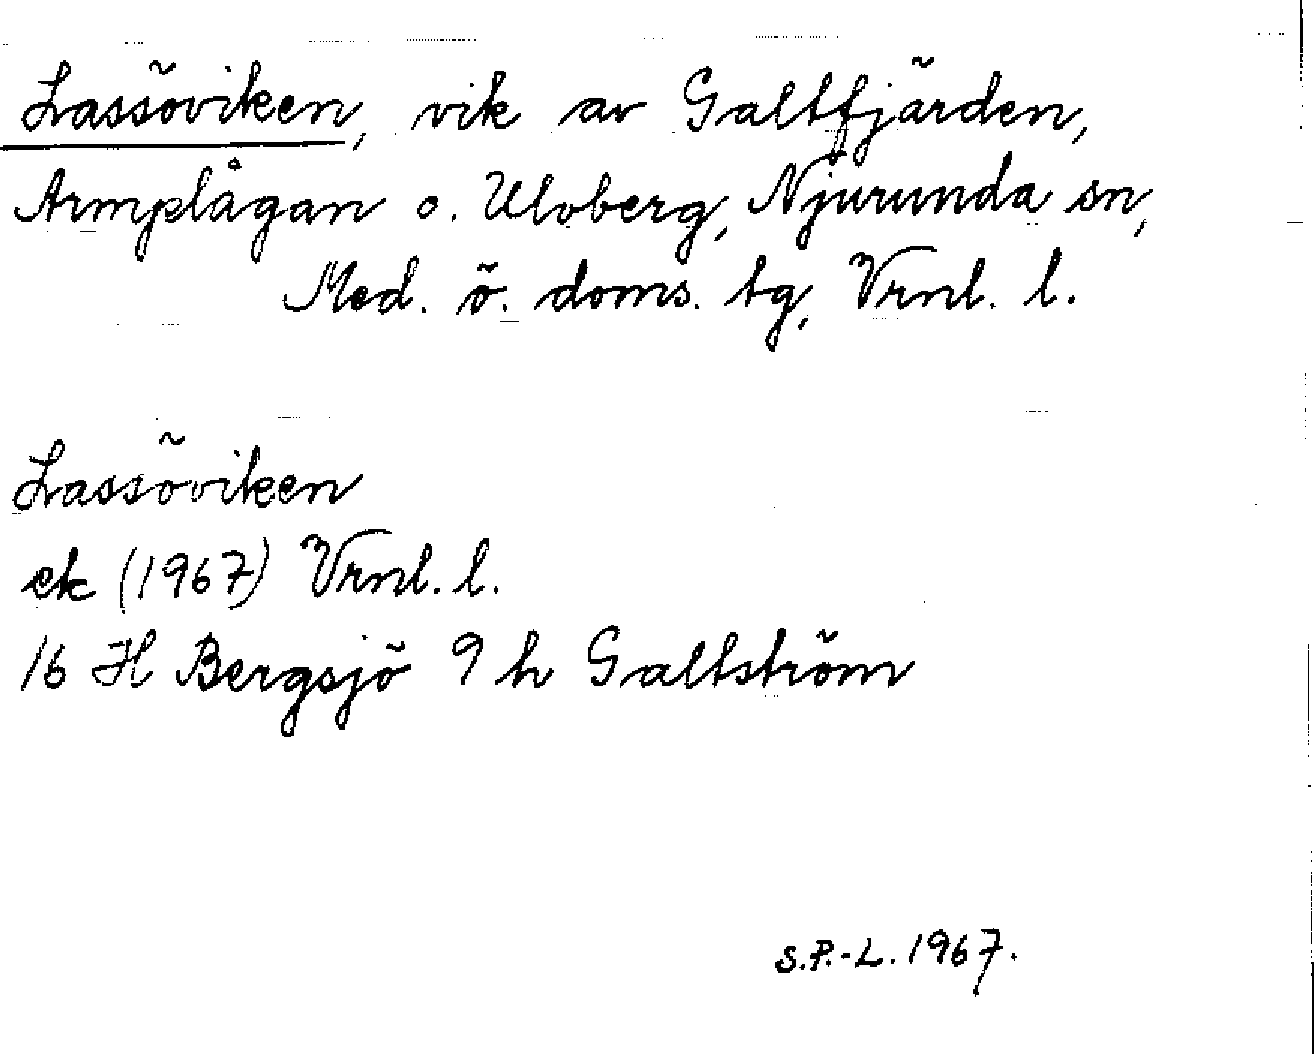 Lassöviken, vik av Galtfjärden,
Armplågan o. Ulvberg, Njurunda sn,
Med. ö. doms. tg, Vrnl. l.
Lassöviken
ek (1967) Vrnl. l.
16 H Bergsjö 9 h Galtström
S.P.-L. 1967.